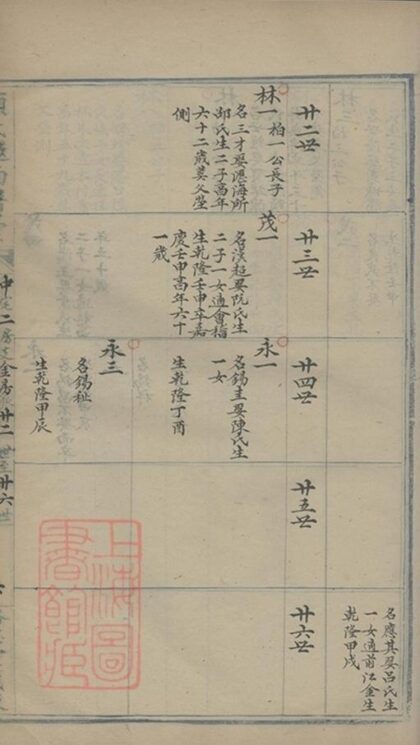 名應其娶呂氏生
一女適前江金生
乾隆甲戌
廿二世
廿三世
廿四世
廿五世
廿六世
林一
柏一公長子
名三才娶滙海所
邵氏生二子高年
六十二歲葬父塋
側
茂一
名漢超娶阮氏生
二子一女適會稽
生乾隆壬申卒嘉
慶壬申高年六十
一歲
永一
名錫圭娶陳氏生
一女
生乾隆丁酉
永三
名錫祉
生乾隆甲辰
中 二房 金房 廿二世至廿六世
上海圖
書館藏